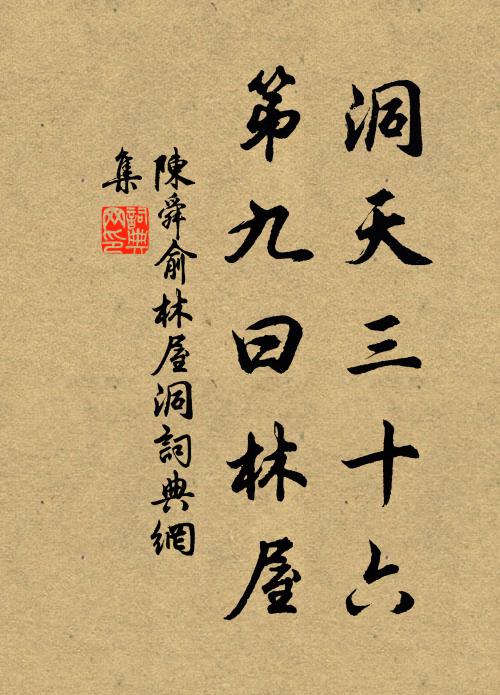 洞天三十六
第九曰林屋
陳舜俞林屋洞詞典網
集
詞典
网印